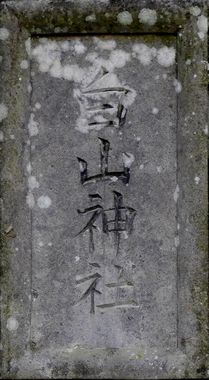 白山神社